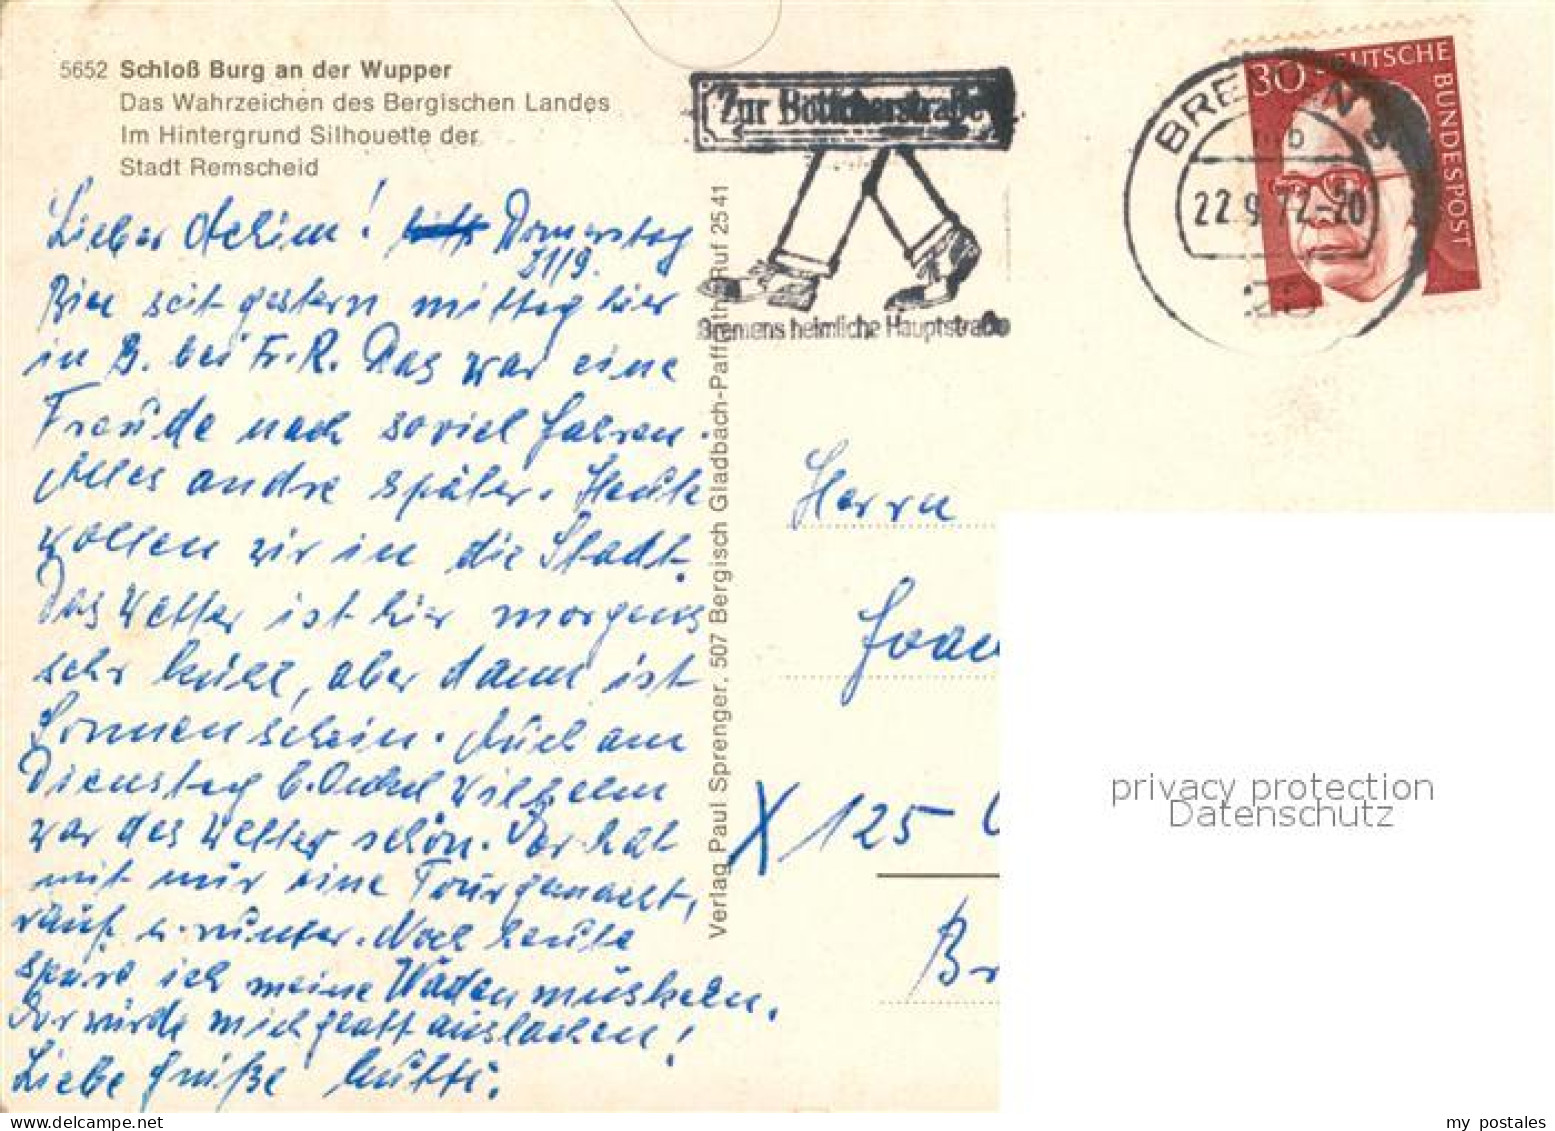 5652 Schloß Burg an der Wupper
Das Wahrzeichen des Bergischen Landes
Im Hintergrund Silhouette der
Stadt Remscheid
Lieber Achim! Donnerstag
21/9.
Bin seit gestern mittag hier
in B. bei Fr. R. Das war eine
Freude nach soviel Jahren.
Alles andre später. Heute
wollen wir in die Stadt.
Das Wetter ist hier morgens
sehr kühl, aber dann ist
Sonnenschein. Auch am
Dienstag b. Onkel Wilhelm
war das Wetter schön. Der hat
mit mir eine Tour gemacht,
rauf u. runter. Noch heute
spüre ich meine Wadenmuskeln.
Der würde mich glatt auslachen!
Liebe Grüße Mutti.
Verlag Paul Sprenger, 507 Bergisch Gladbach-Paffrath, Ruf 2541
Zur Böttcherstraße
Bremens heimliche Hauptstraße
BREMEN 5
22.9.72-20
30 DEUTSCHE BUNDESPOST
Herrn
Joac
X 125
Br
privacy protection
Datenschutz
my postales